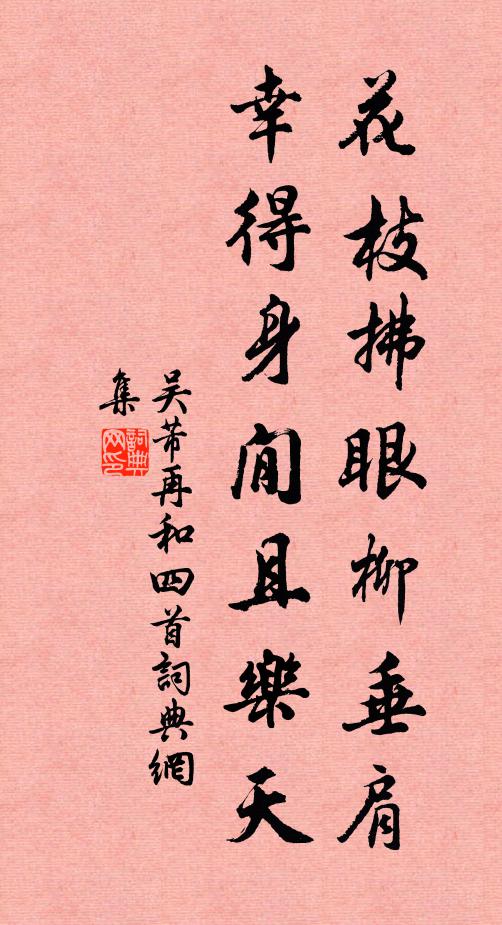 花枝拂眼柳垂肩
幸得身閒且樂天
吴芾再和四首詞典網
集
詞典
网印